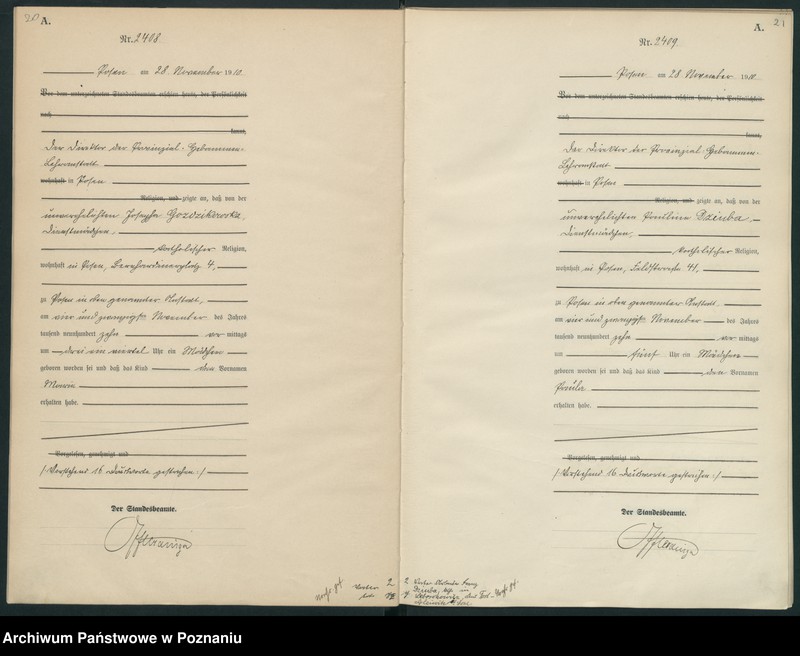 20
A.
Nr. 2408
Posen am 28. November 1910
Vor dem unterzeichneten Standesbeamten erschien heute, der Persönlichkeit
nach
kannt,
Der Direktor der Provinzial-Hebammen-
Lehranstalt
wohnhaft in Posen
Religion, und zeigte an, daß von der
unverehelichten Josepha Gozdzikowska,
Dienstmädchen,
katholischer Religion,
wohnhaft in Posen, Bernhardinerplatz 4,
zu Posen in oben genannter Anstalt,
am vier und zwanzigsten November des Jahres
tausend neunhundert zehn vor mittags
um drei ein viertel Uhr ein Mädchen
geboren worden sei und daß das Kind den Vornamen
Maria
erhalten habe.
Vorgelesen, genehmigt und
/: Vorstehend 16 Druckworte gestrichen :/
Der Standesbeamte.
A.
21
Nr. 2409
Posen am 28 November 1910
Vor dem unterzeichneten Standesbeamten erschien heute, der Persönlichkeit
nach
kannt,
Der Direktor der Provinzial-Hebammen-
Lehranstalt
wohnhaft in Posen
Religion, und zeigte an, daß von der
unverehelichten Pauline Dziuba,
Dienstmädchen,
katholischer Religion,
wohnhaft in Posen, Feldstrasse 41,
zu Posen in oben genannter Anstalt,
am vier und zwanzigsten November des Jahres
tausend neunhundert zehn vor mittags
um fünf Uhr ein Mädchen
geboren worden sei und daß das Kind den Vornamen
Paula
erhalten habe.
Vorgelesen, genehmigt und
/: Vorstehend 16 Druckworte gestrichen :/
Der Standesbeamte.
Archiwum Państwowe w Poznaniu